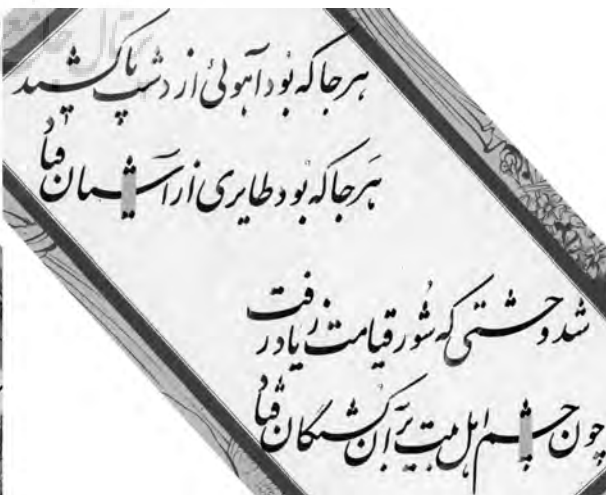 پرتال جامع
هرجا که بود آهوئی از دشت پا کشید
هرجا که بود طایری از آشیان فتاد
شد وحشتی که شور قیامت ز یاد رفت
چون چشم اهل بیت بر آن کشتگان فتاد